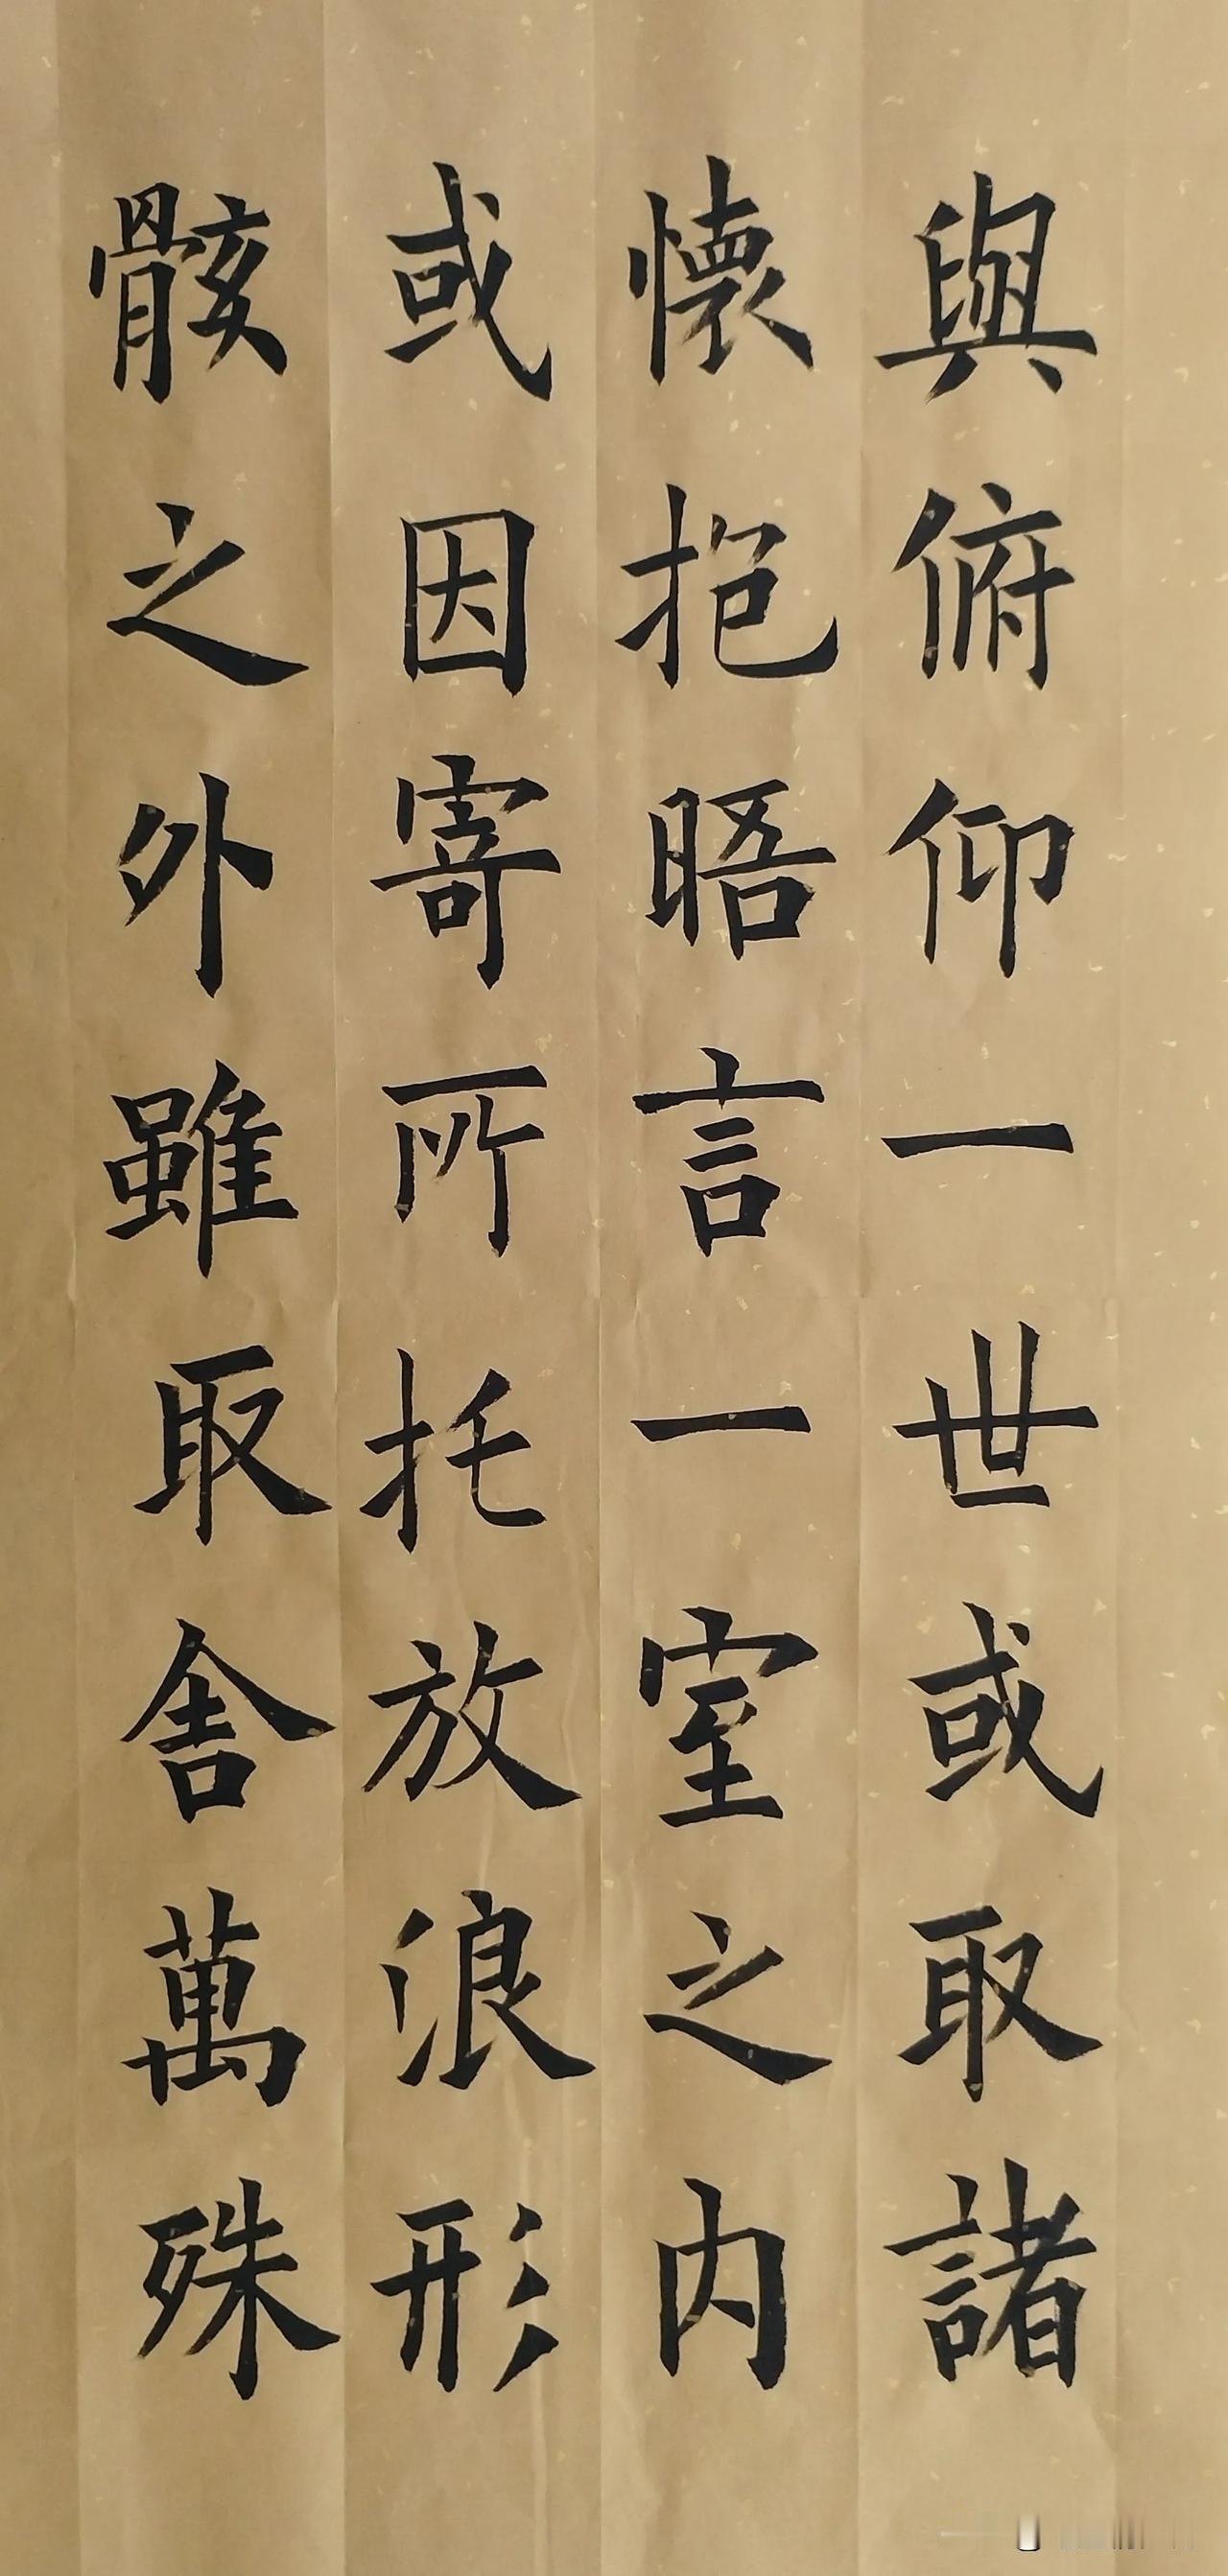 與俯仰一世或取諸
懷抱晤言一室之内
或因寄所托放浪形
骸之外雖取舍萬殊